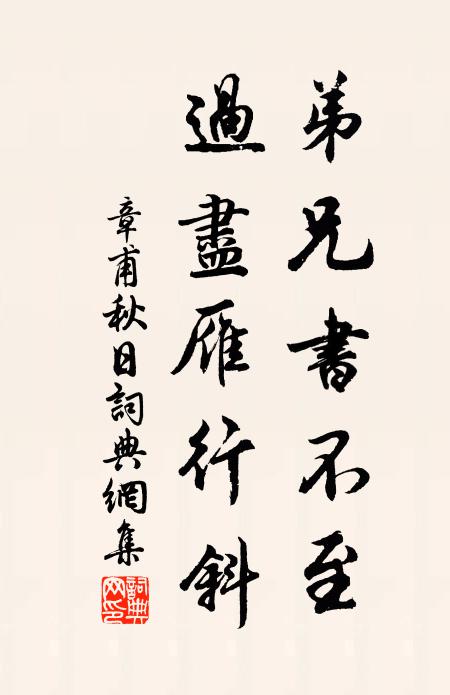 弟兄書不至
過盡雁行斜
章甫秋日詞典網集
詞典網印